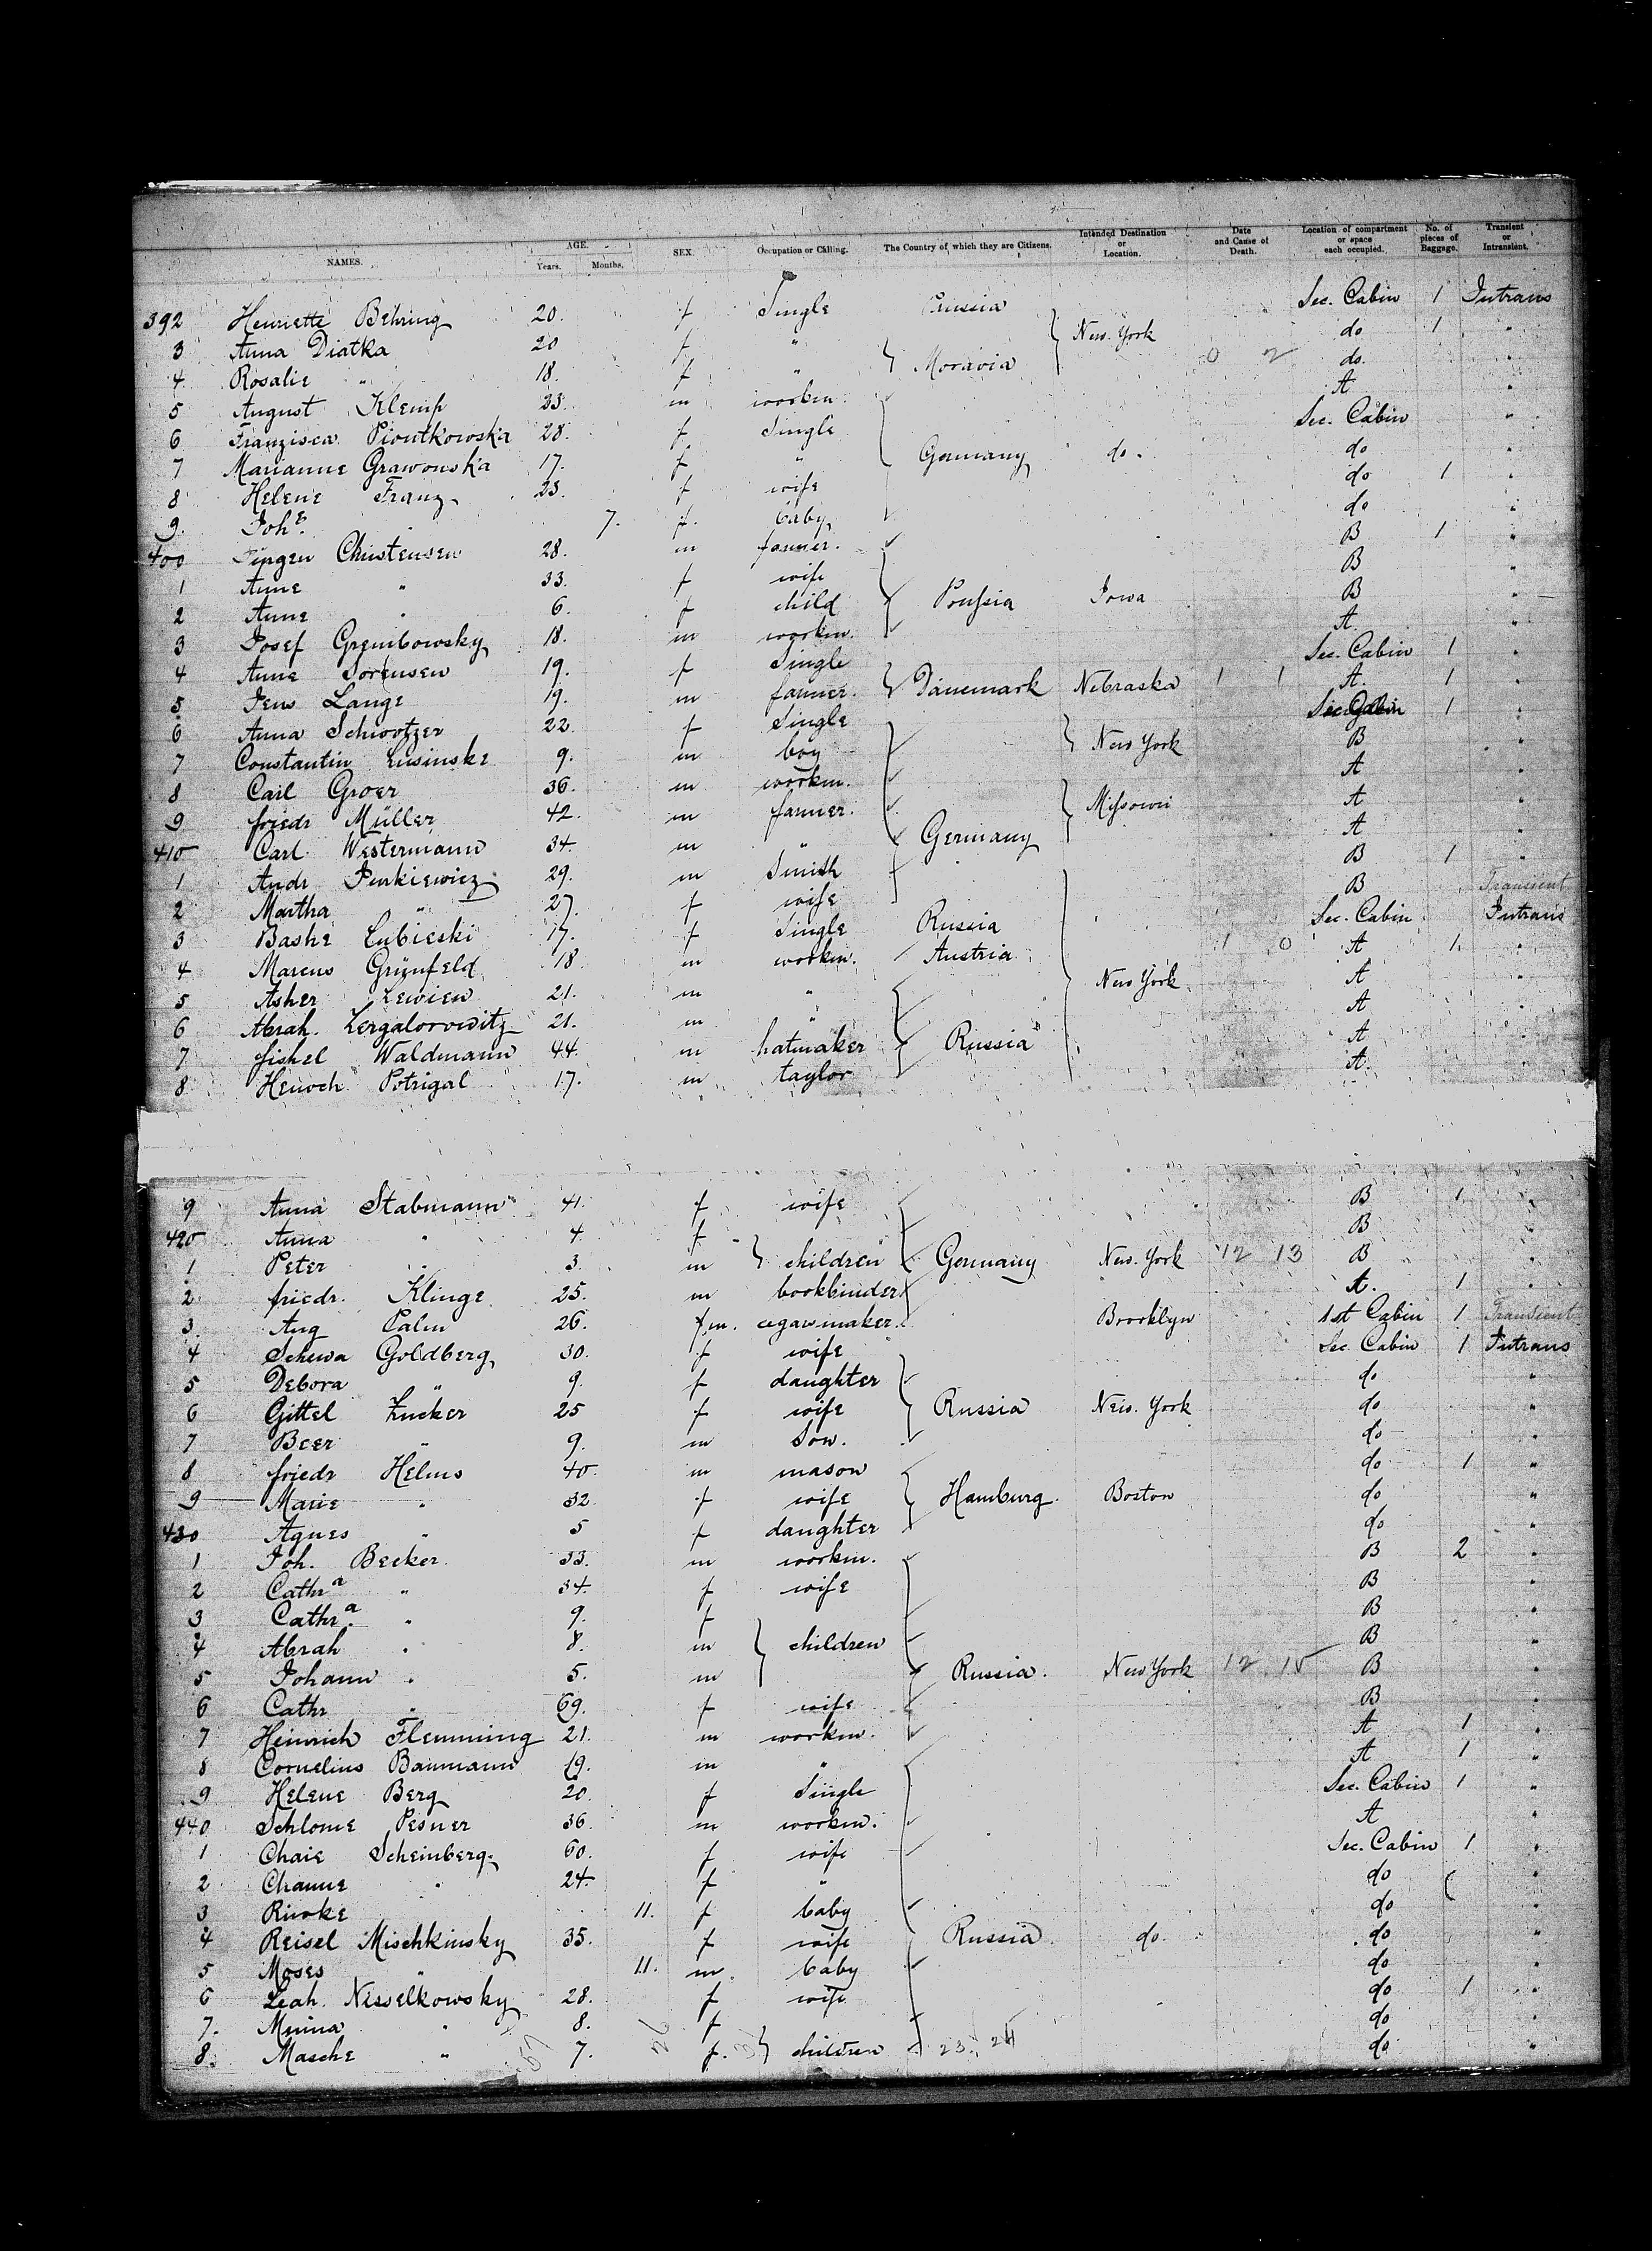 NAMES. AGE. Years. Months. SEX. Occupation or Calling. The Country of which they are Citizens. Intended Destination or Location. Date and Cause of Death. Location of compartment or space each occupied. No. of pieces of Baggage. Transient or Intransient.
392 Henriette Behring 20. f Single Prussia Sec. Cabin 1 Intrans
3 Anna Diatka 20 f " New York do 1 "
4 Rosalie " 18. f " Moravia 0 2 do. "
5 August Klemp 33. m workm. A "
6 Franzisca Piontkowska 28. f Single Sec. Cabin "
7 Marianne Grawonska 17. f " Germany do. do "
8 Helene Franz 23. f wife do 1 "
9. Joh.e " 7. f. baby do "
400 Jürgen Christensen 28. m farmer. B 1 "
1 Anne " 33. f wife B "
2 Anne " 6. f child Prussia Iowa B "
3 Josef Grembowsky 18. m workm. A "
4 Anne Sorensen 19. f Single Sec. Cabin 1 "
5 Jens Lange 19. m farmer. Dänemark Nebraska 1 1 A. 1 "
6 Anna Schwotzer 22 f Single Sec. Cabin 1 "
7 Constantin Lusinske 9. m boy New York B "
8 Carl Groer 36. m workm. A "
9 friedr Müller 42. m farmer. Missouri A "
410 Carl Westermann 34. m " Germany A "
1 Andr Purkiewicz 29. m Smith B 1 "
2 Martha " 27. f wife B Transient
3 Bashe Lubieski 17. f Single Russia Sec. Cabin Intrans
4 Marcus Grünfeld 18 m workm. Austria 1 0 A 1. "
5 Asher Lewien 21. m " New York A "
6 Abrah. Zergalorowitz 21. m " A "
7 fishel Waldmann 44. m hatmaker Russia A "
8 Henoch Potrigal 17. m taylor A. "
9 Anna Stabmann 41. f wife B 1 "
420 Anna " 4. f B "
1 Peter " 3. m children Germany New York 12 13 B "
2 friedr. Klinge 25. m bookbinder A. 1 "
3 Aug Calm 26. f m. cegarmaker. Brooklyn 1st Cabin 1 Transient
4 Schewa Goldberg 30. f wife Sec. Cabin 1 Intrans
5 Debora " 9. f daughter do "
6 Gittel Zucker 25 f wife Russia New York do "
7 Beer " 9. m Son. do "
8 friedr Helms 40. m mason do 1 "
9 Marie " 32. f wife Hamburg. Boston do "
430 Agnes " 5 f daughter do "
1 Joh. Becker 33. m workm. B 2 "
2 Cathr.a " 34. f wife B "
3 Cathr.a " 9. f B "
4 Abrah " 8. m children B "
5 Johann " 5. m Russia. New York 12 15 B "
6 Cathr " 69. f wife B "
7 Heinrich Flemming 21. m workm. A 1 "
8 Cornelius Baumann 19. m " A 1 "
9 Helene Berg 20 f Single Sec. Cabin 1 "
440 Schlome Pesner 36. m workm. A "
1 Chaie Scheinberg. 60. f wife Sec. Cabin 1 "
2 Channe " 24. f " do "
3 Riwke 11. f baby do "
4 Reisel Mischkinsky 35. f wife Russia do. do "
5 Moses " 11. m. baby do "
6 Leah. Nisselkowsky 28. f wife do 1 "
7. Minna " 8. f do "
8. Masche " 7. f. children 23. 24 do "